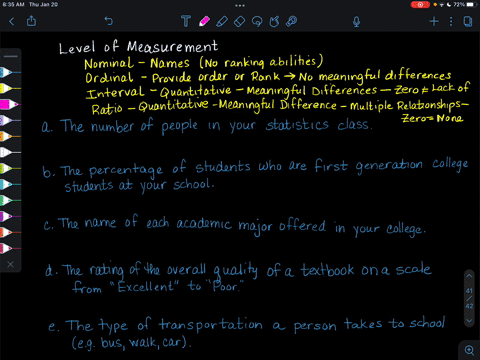 8:35 AM Thu Jan 20
72%
Level of Measurement
Nominal - Names (No ranking abilities)
Ordinal - Provide order or Rank → No meaningful differences
Interval - Quantitative - Meaningful Differences - Zero ≠ Lack of
Ratio - Quantitative - Meaningful Difference - Multiple Relationships -
Zero = None
a. The number of people in your statistics class.
b. The percentage of students who are first generation college
students at your school.
c. The name of each academic major offered in your college.
d. The rating of the overall quality of a textbook on a scale
from "Excellent" to "Poor."
e. The type of transportation a person takes to school
(e.g. bus, walk, car).
41
42